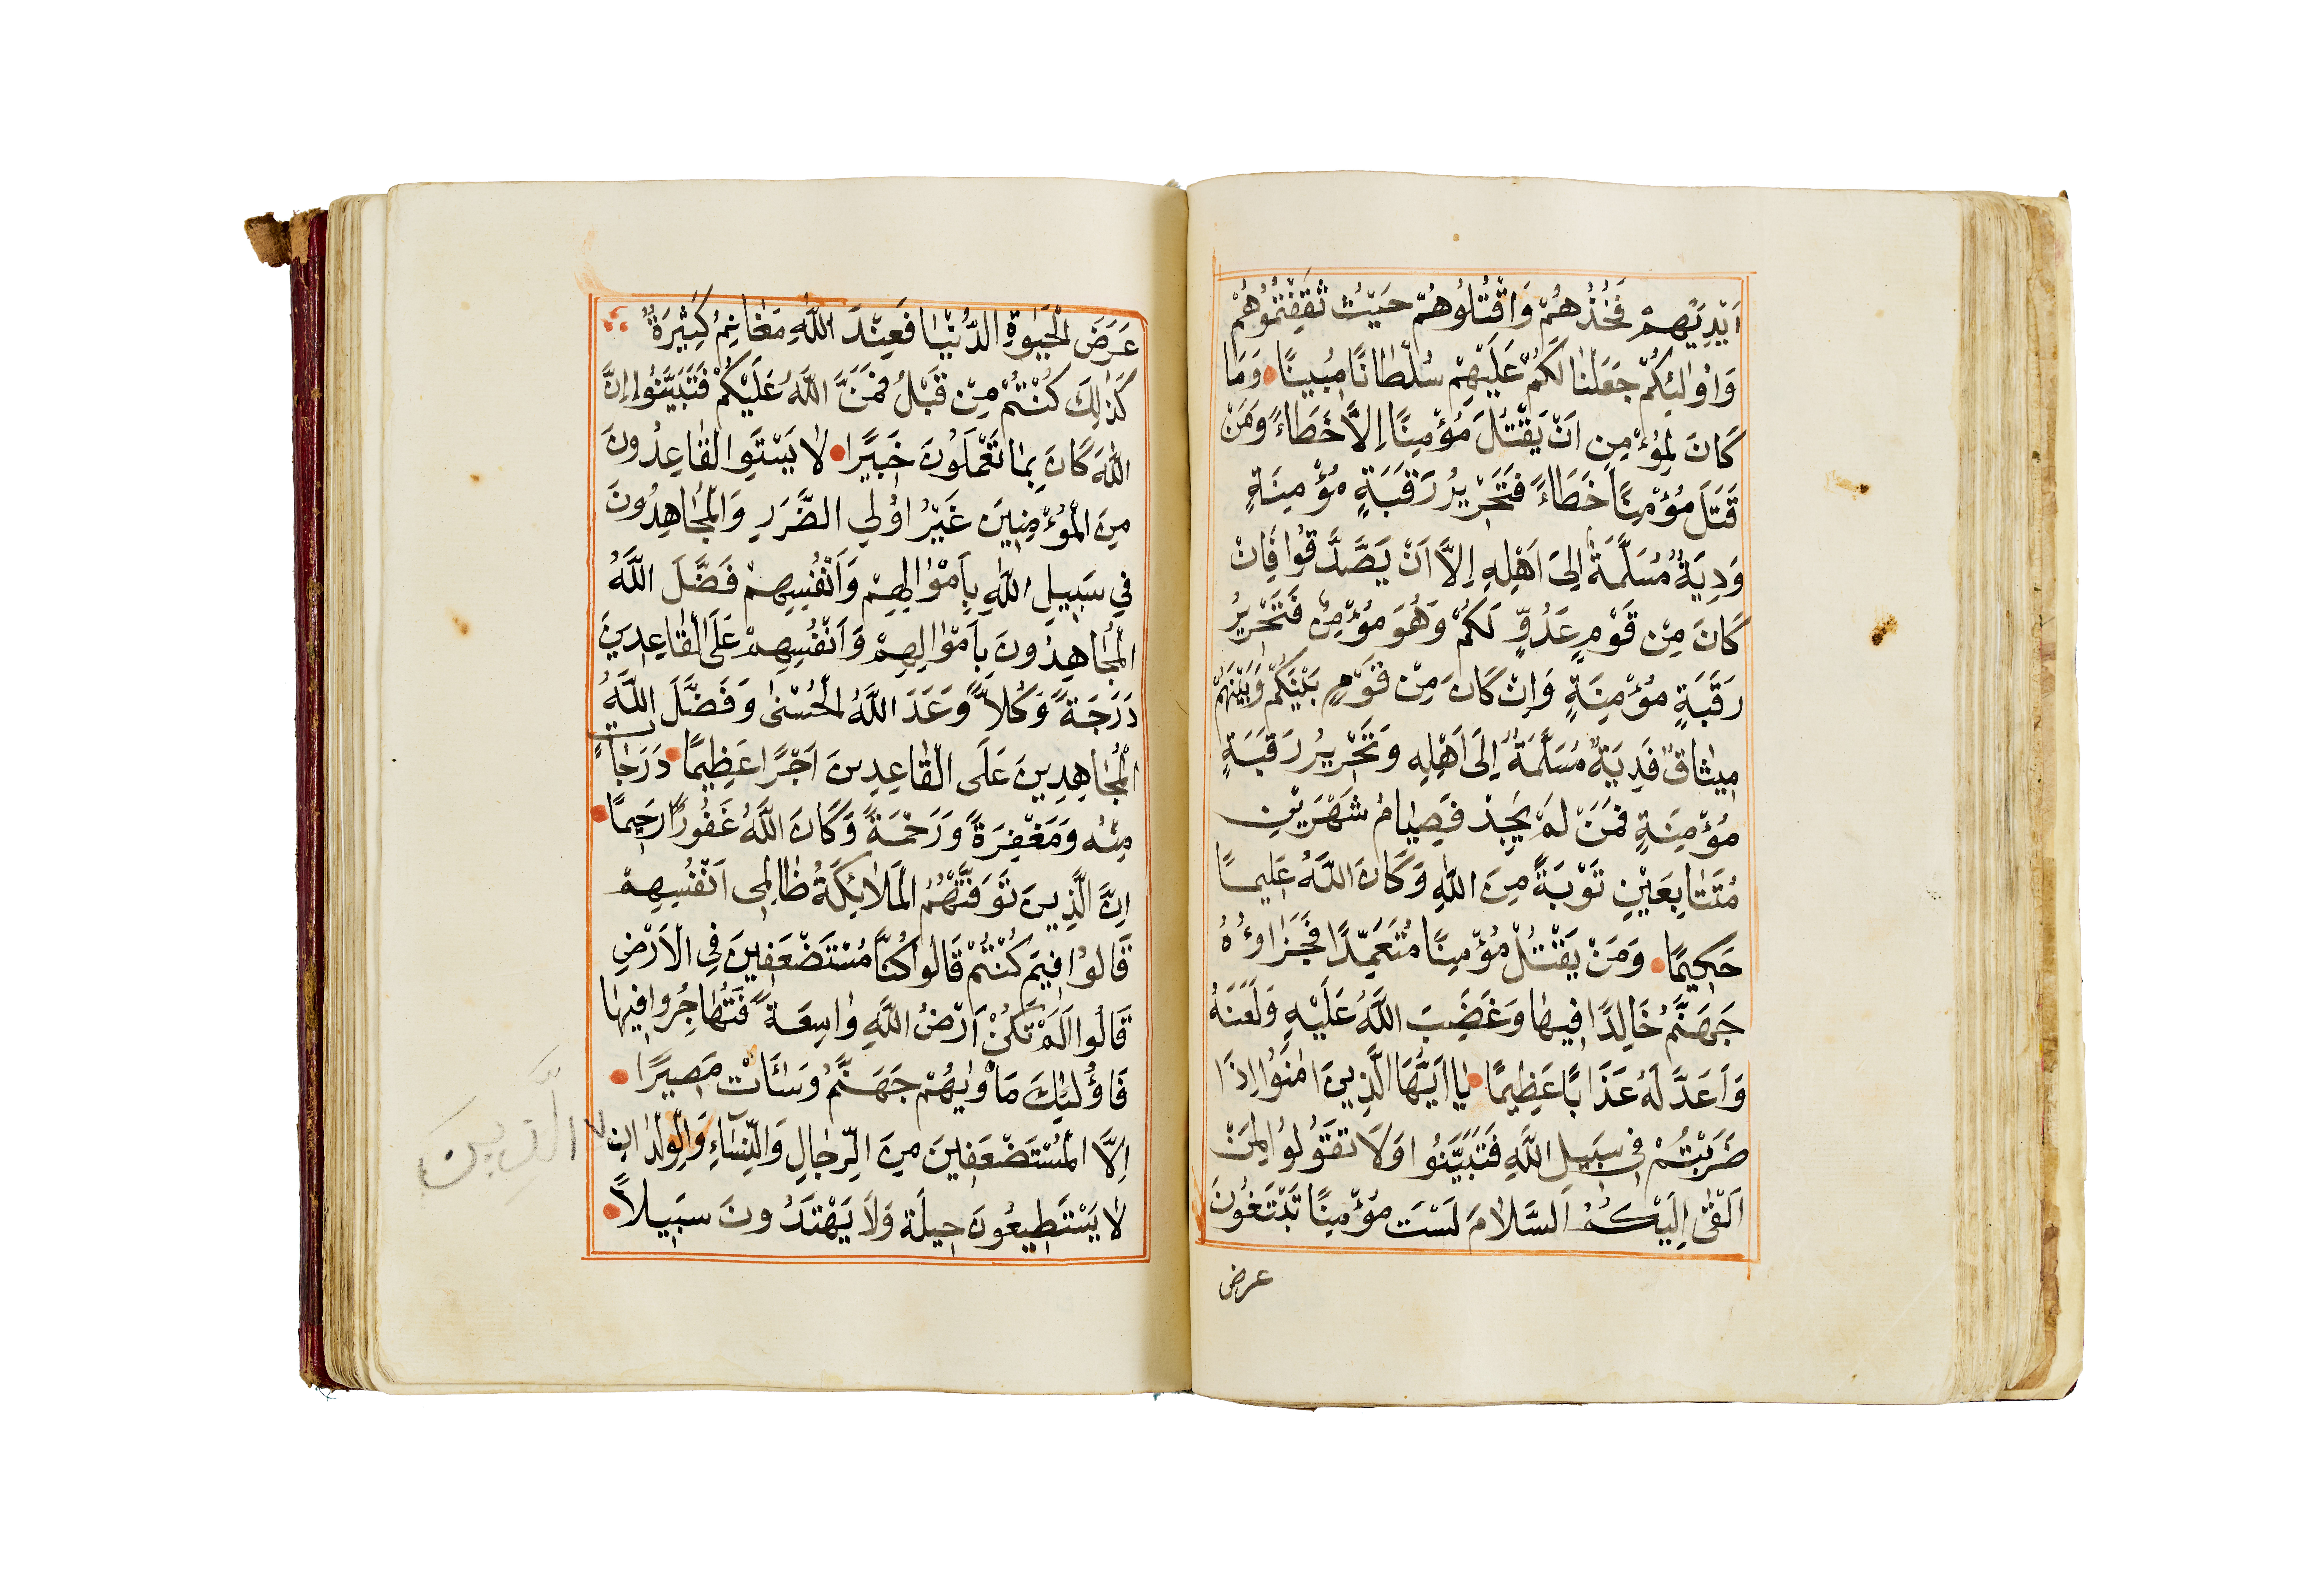 اَيْدِيَهُمْ فَخُذُهُمْ وَاقْتُلُوهُمْ حَيْثُ ثَقِفْتُمُوُهُمْ
وَاُوٰلٰئِكُمْ جَعَلْنٰا لَكُمْ عَلَيْهِمْ سُلْطٰانًا مُبينًا وَمٰا
كٰانَ لِمُؤْمِنٍ اَنْ يَقْتُلَ مُؤْمِنًا اِلاَّ خَطَاءً وَمَنْ
قَتَلَ مُؤْمِنًا خَطَاءً فَتَحْرْيرُ رَقَبَةٍ مُؤْمِنَةٍ
وَدِيَةٌ مُسَلَّمَةٌ اِلىَ اَهْلِهِ اِلاَّ اَنْ يَصَّدَّقُوا فَاِنْ
كٰانَ مِنْ قَوْمٍ عَدُوٍّ لَكُمْ وَهُوَ مُؤْمِنٌ فَتَحْريرُ
رَقَبَةٍ مُؤْمِنَةٍ وَاِنْ كٰانَ مِنْ قَوْمٍ بَيْنَكُمْ وَبَيْنَهُمْ
ميثٰاقٌ فَدِيَةٌ مُسَلَّمَةٌ اِلىَ اَهْلِهِ وَتَحْريرُ رَقَبَةٍ
مُؤْمِنَةٍ فَمَنْ لَمْ يَجِدْ فَصِيٰامُ شَهْرَيْنِ
مُتَتٰابِعَيْنِ تَوْبَةً مِنَ اللّٰهِ وَكٰانَ اللّٰهُ عَليمًا
حَكيمًا وَمَنْ يَقْتُلْ مُؤْمِنًا مُتَعَمِّدًا فَجَزٰاؤُهُ
جَهَنَّمُ خٰالِدًا فيهٰا وَغَضِبَ اللّٰهُ عَلَيْهِ وَلَعَنَهُ
وَاَعَدَّ لَهُ عَذٰابًا عَظيمًا يٰا اَيُّهَا الَّذينَ اٰمَنُوا اِذٰا
ضَرَبْتُمْ فى سَبيلِ اللّٰهِ فَتَبَيَّنُوا وَلاٰ تَقُولُوا لِمَنْ
اَلْقٰى اِلَيْكُمُ السَّلاٰمَ لَسْتَ مُؤْمِنًا تَبْتَغُونَ
عرض
عَرَضَ الْحَيٰوةِ الدُّنْيٰا فَعِنْدَ اللّٰهِ مَغٰانِمُ كَثيرَةٌ
كَذٰلِكَ كُنْتُمْ مِنْ قَبْلُ فَمَنَّ اللّٰهُ عَلَيْكُمْ فَتَبَيَّنُوا اِنَّ
اللّٰهَ كٰانَ بِمٰا تَعْمَلُونَ خَبيرًا لاٰ يَسْتَوِى الْقٰاعِدُونَ
مِنَ الْمُؤْمِنينَ غَيْرُ اوُلِى الضَّرَرِ وَالْمُجٰاهِدُونَ
فى سَبيلِ اللّٰهِ بِاَمْوٰالِهِمْ وَاَنْفُسِهِمْ فَضَّلَ اللّٰهُ
الْمُجٰاهِدُونَ بِاَمْوٰالِهِمْ وَاَنْفُسِهِمْ عَلَى الْقٰاعِدينَ
دَرَجَةً وَكُلاًّ وَعَدَ اللّٰهُ الْحُسْنٰى وَفَضَّلَ اللّٰهُ
الْمُجٰاهِدينَ عَلَى الْقٰاعِدينَ اَجْرًا عَظيمًا دَرَجٰاتٍ
مِنْهُ وَمَغْفِرَةً وَرَحْمَةً وَكٰانَ اللّٰهُ غَفُورًا رَحيمًا
اِنَّ الَّذينَ تَوَفّٰيهُمُ الْمَلاٰئِكَةُ ظٰالِمى اَنْفُسِهِمْ
قٰالُوا فيمَ كُنْتُمْ قٰالُوا كُنّٰا مُسْتَضْعَفينَ فِى الْاَرْضِ
قٰالُوا اَلَمْ تَكُنْ اَرْضُ اللّٰهِ وٰاسِعَةً فَتُهٰاجِرُوا فيهٰا
فَاوُلٰئِكَ مَأْوٰيهُمْ جَهَنَّمُ وَسٰائَتْ مَصيرًا
اِلاَّ الْمُسْتَضْعَفينَ مِنَ الرِّجٰالِ وَالنِّسٰاءِ وَالْوِلْدٰانِ
الَّذِينَ
لاٰ يَسْتَطيعُونَ حيلَةً وَلاٰ يَهْتَدُونَ سَبيلاً